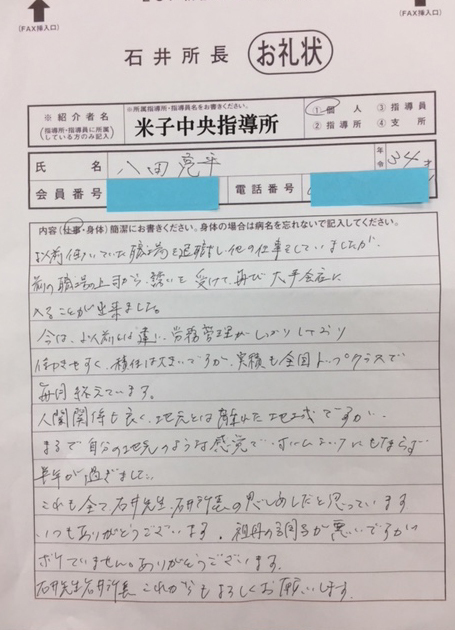 (FAX挿入口)
(FAX挿入口)
石井所長 お礼状
※紹介者名
(指導所・指導員に所属している方のみ記入)
※所属指導所・指導員名をお書きください。
米子中央指導所
①個人 ③指導員
②指導所 ④支所
氏名 八田亮平
年令 34才
会員番号
電話番号
内容(仕事・身体)簡潔にお書きください。身体の場合は病名を忘れないで記入してください。
以前働いていた職場を退職し他の仕事をしていましたが、
前の職場の上司から誘いを受けて、再び大手会社に
入ることが出来ました。
今は、以前とは違い、労務管理がしっかりしており
働きやすく、責任は大きいですが、実績も全国トップクラスで
毎回終えています。
人間関係も良く、地元とは離れた地域ですが、
まるで自分の地元のような感覚で、ホームシックにもならず
長年が過ぎました。
これも全て、石井先生、石井所長の思しめしだと思っています
いつもありがとうございます。祖母の が悪いですが
ボケていません。ありがとうございます。
石井先生石井所長これからもよろしくお願いします。